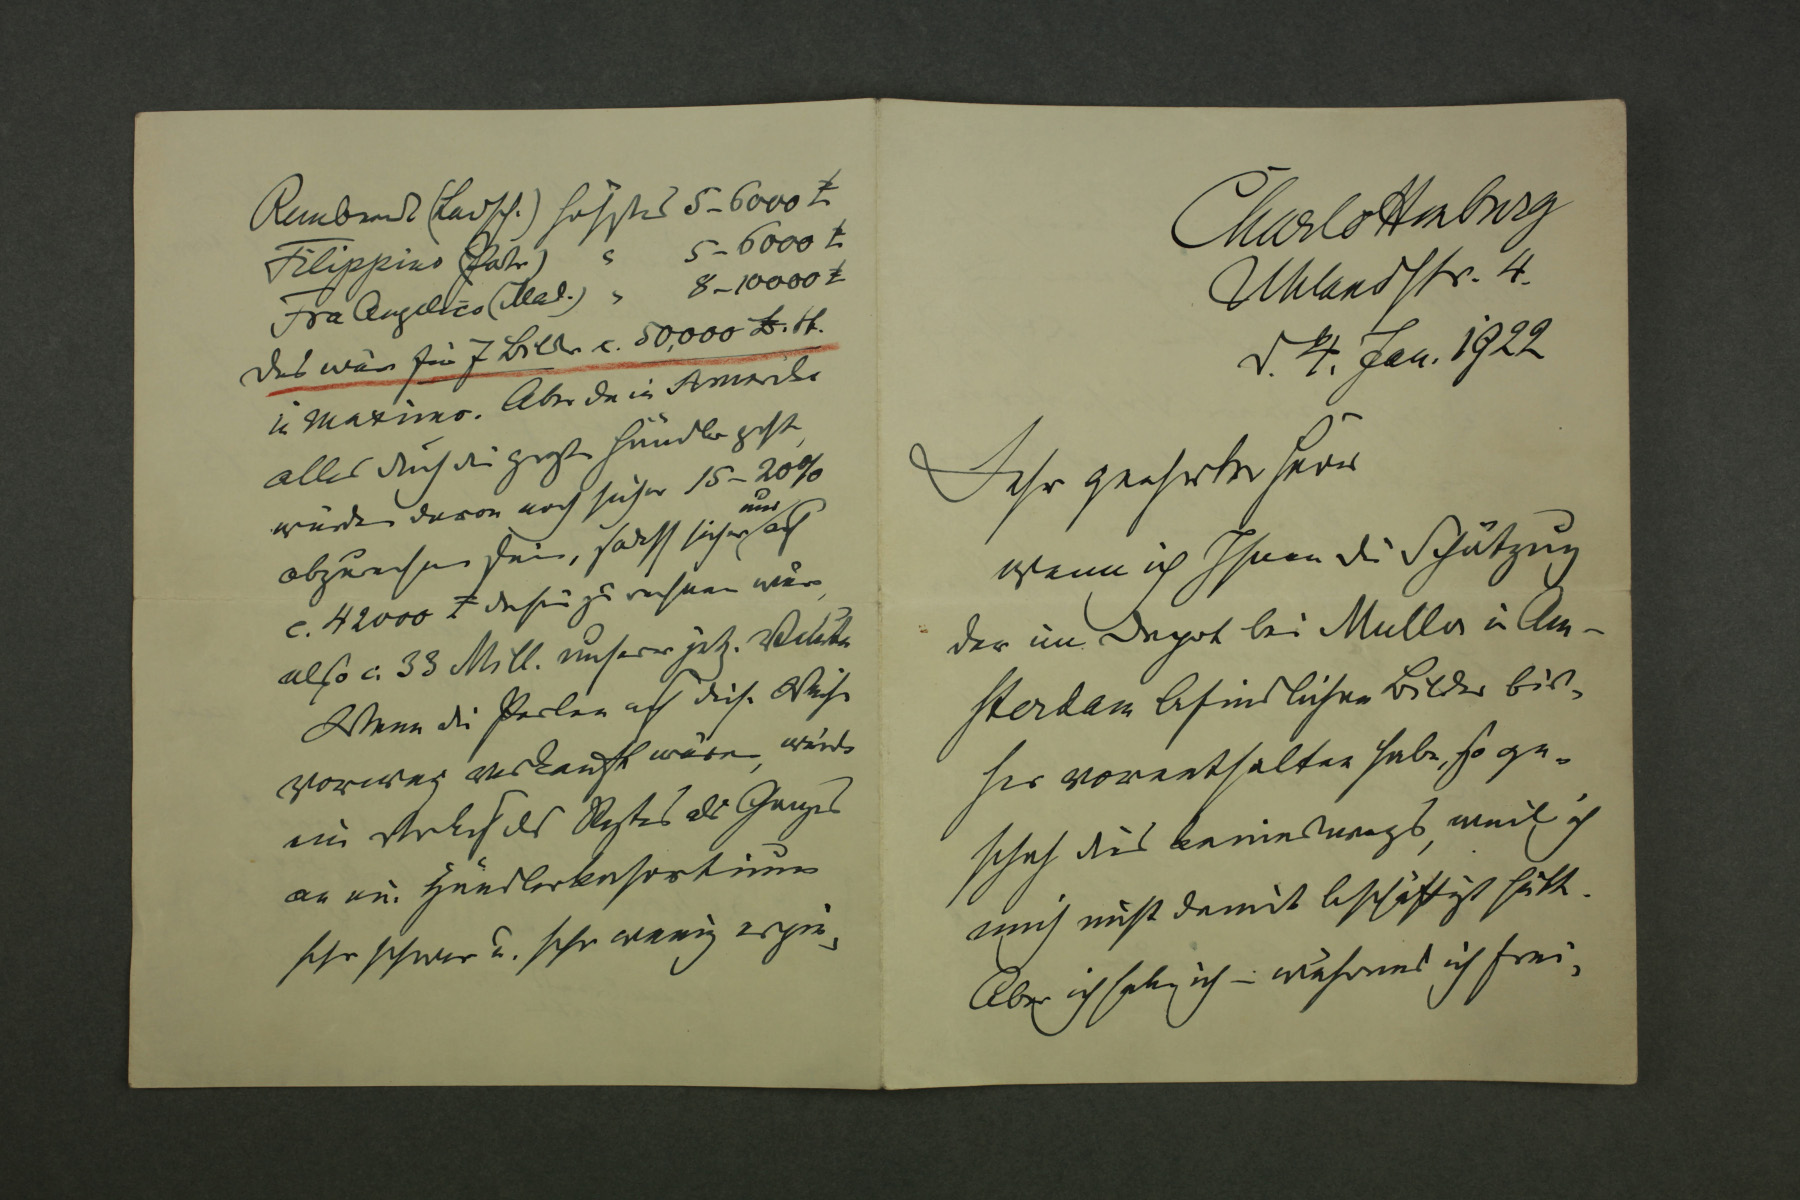 Charlottenburg
Uhlandstr. 4.
d. 4. Jan. 1922
Sehr geehrter Herr
wenn ich Ihnen die Schätzung
der im Depot bei Muller in Am-
sterdam befindlichen Bilder bis-
her vorenthalten habe, so ge-
schah dies keineswegs, weil ich
mich nicht damit beschäftigt hätte.
Aber ich – während ich frei-
Rembrandt (Ladsch.) höchstens 5-6000 £
Filippino " 5-6000 £
Fra Angelico (Mad.) " 8-10000 £
Das wäre für 7 Bilder c. 50,000 £. st.
in maximo. Aber da in Amerika
alles durch die großen Händler geht,
würden davon noch sicher 15-20%
abzurechnen sein, sodaß sicher nur auf
c. 42000 £ dafür zu rechnen wäre,
also c. 33 Mill. unserer jetz. Valuta
Wenn die Perlen auf diese Weise
vorweg verkauft wären, würde
ein Verkauf des Restes als Ganzes
an ein. Händlerkonsortium
sehr schwer u. sehr wenig ergie-